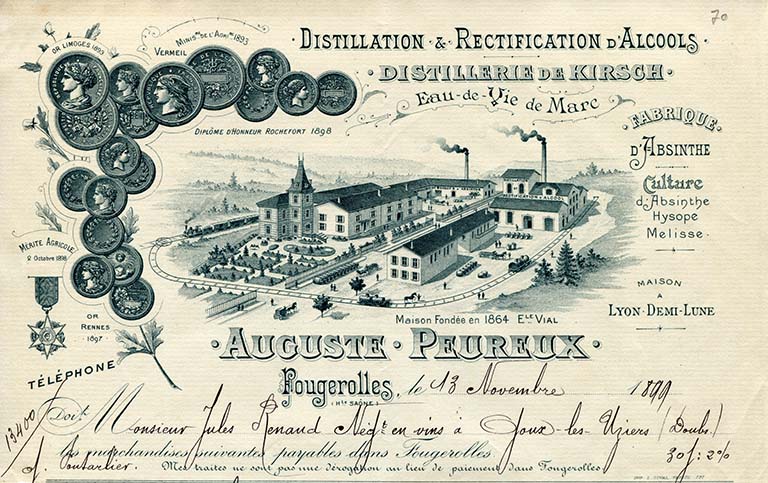 70
OR LIMOGES 1893
VERMEIL
MINISRE DE L'AGRI. 1893
DISTILLATION & RECTIFICATION D'ALCOOLS
DISTILLERIE DE KIRSCH
Eau-de-Vie de Marc
DIPLÔME D'HONNEUR ROCHEFORT 1898
FABRIQUE
D'ABSINTHE
Culture
d'Absinthe
Hysope
Melisse
MÉRITE AGRICOLE
2 Octobre 1898
OR
RENNES
1897
MAISON
A
LYON-DEMI-LUNE
Maison Fondée en 1864 ELSE VIAL
AUGUSTE PEUREUX
TÉLÉPHONE
Fougerolles, le 13 Novembre 1899
(HTE SAÔNE)
13400
Doit Monsieur Jules Renaud Négt en vins à Joux-les- (Doubs)
les marchandises suivantes payables dans Fougerolles 30 j: 2%
Pontarlier.
Mes traites ne sont pas une dérogation au lieu de paiement dans Fougerolles